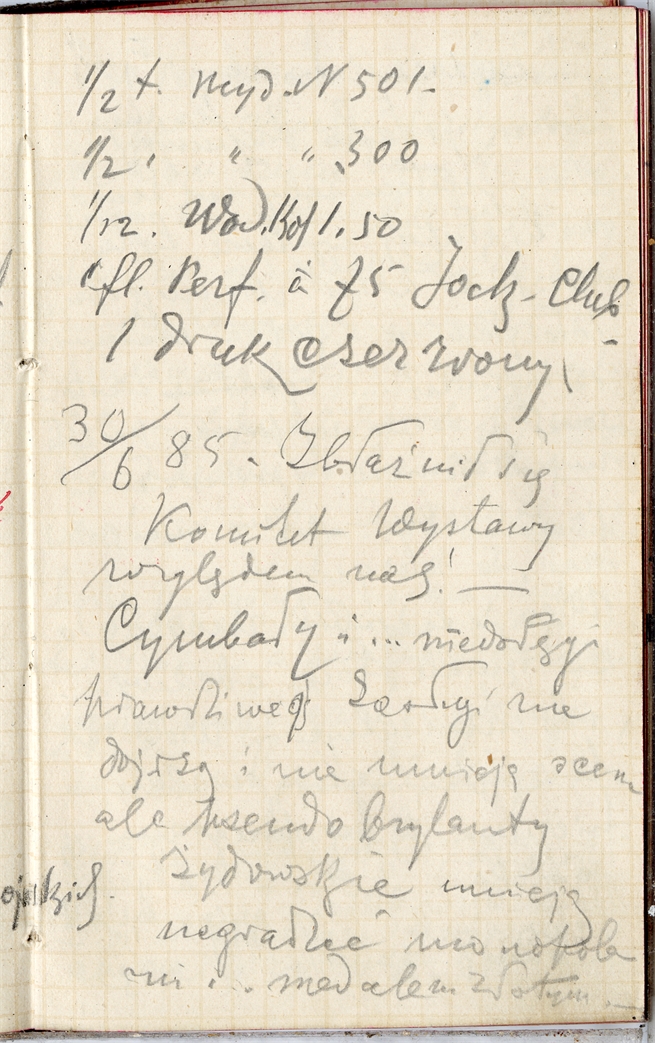 1/2 t. myd. N 501.
1/2 " " " 300
1/12. Wod. Kol 1.50
1 fl. Perf. à 75 Jock-Club
1 druk czerwony
30/6 85. Zbłaźnił się
Komitet Wystawy
względem nas! —
Cymbały i ... niedołęgi
prawdziwej zasługi nie
dojrzą i nie umieją ocenić
ale pseudo brylanty
żydowskie umieją
nagradzać monopola
mi i .. medalem złotym. —